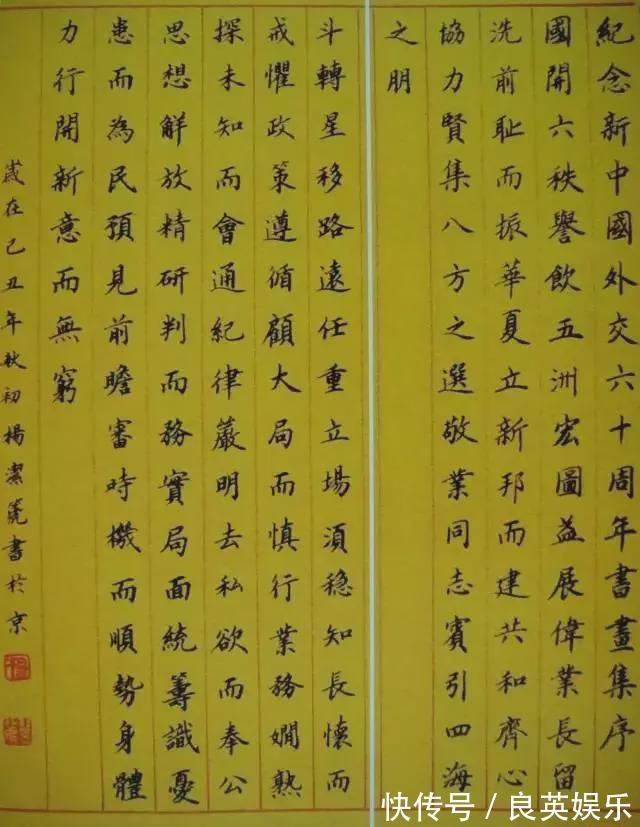 紀念新中國外交六十周年書畫集序
國開六秩譽飲五洲宏圖益展偉業長留
洗前耻而振華夏立新邦而建共和齊心
協力賢集八方之選敬業同志賓引四海
之朋
斗轉星移路遠任重立場須穩知長懷而
戒懼政策遵循顧大局而慎行業務嫻熟
探未知而會通紀律嚴明去私欲而奉公
思想解放精研判而務實局面統籌識憂
患而為民預見前瞻審時機而順勢身體
力行開新意而無窮
歲在己丑年秋初楊潔篪書於京
快传号 / 良英娱乐